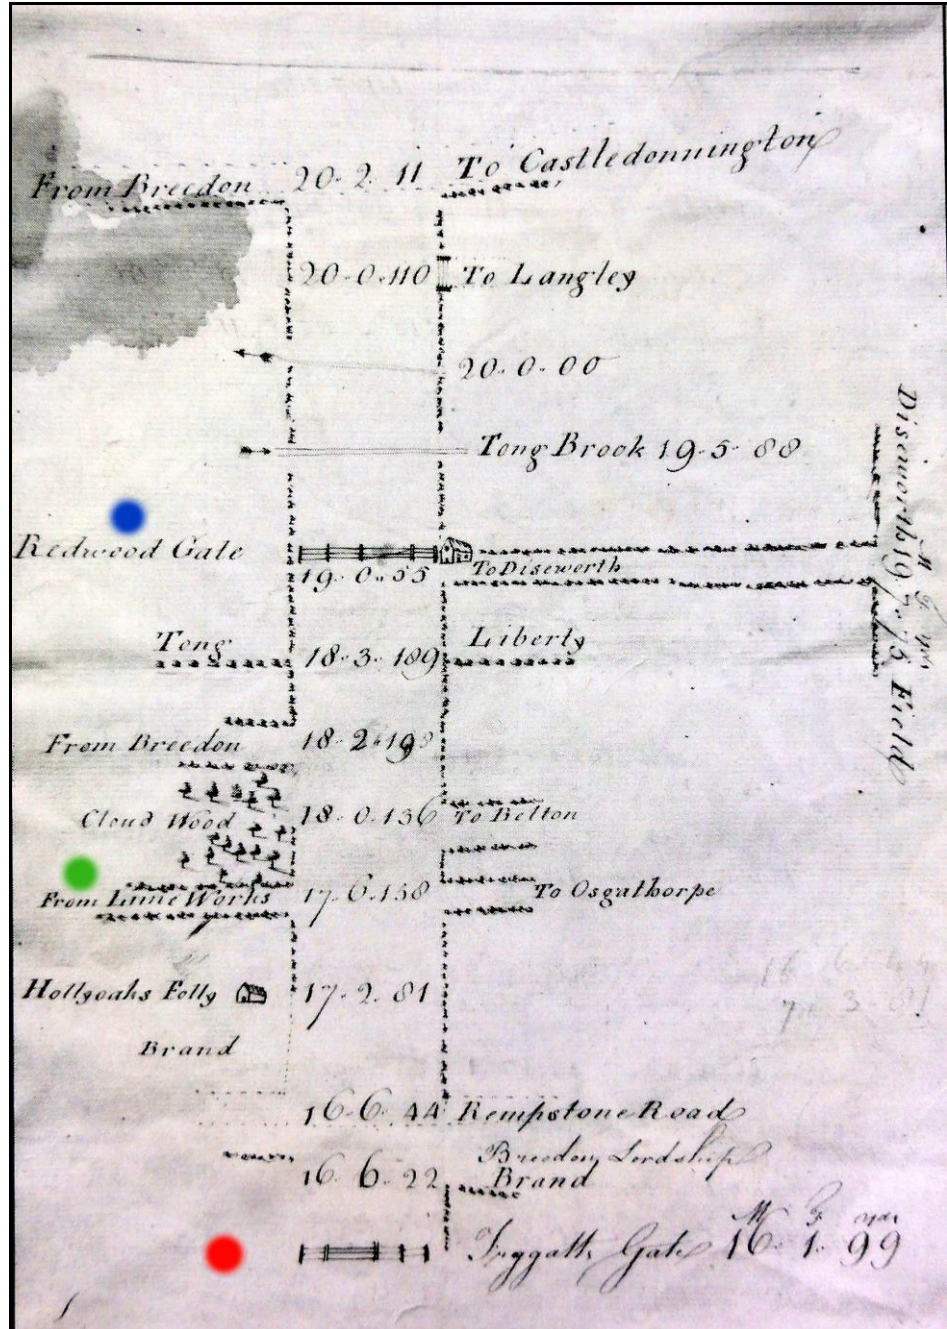 From Breedon 20. 2. 11 To Castledonnington
20. 0. 110 To Langley
20. 0. 00
Tong Brook 19. 5. 88
Redwood Gate
19. 0. 55 To Diseworth
M F yds
Diseworth 19. 7. 75 Field
Tong 18. 3. 189 Liberty
From Breedon 18. 2. 19
Cloud Wood 18. 0. 136 To Belton
From Lime Works 17. 6. 158 To Osgathorpe
16 6 44
7 3 81
Hollyoaks Folly 17. 2. 81
Brand
16. 6. 44 Rempstone Road
Breedon Lordship
16. 6. 22 Brand
M F yds
Gate 16. 1. 99